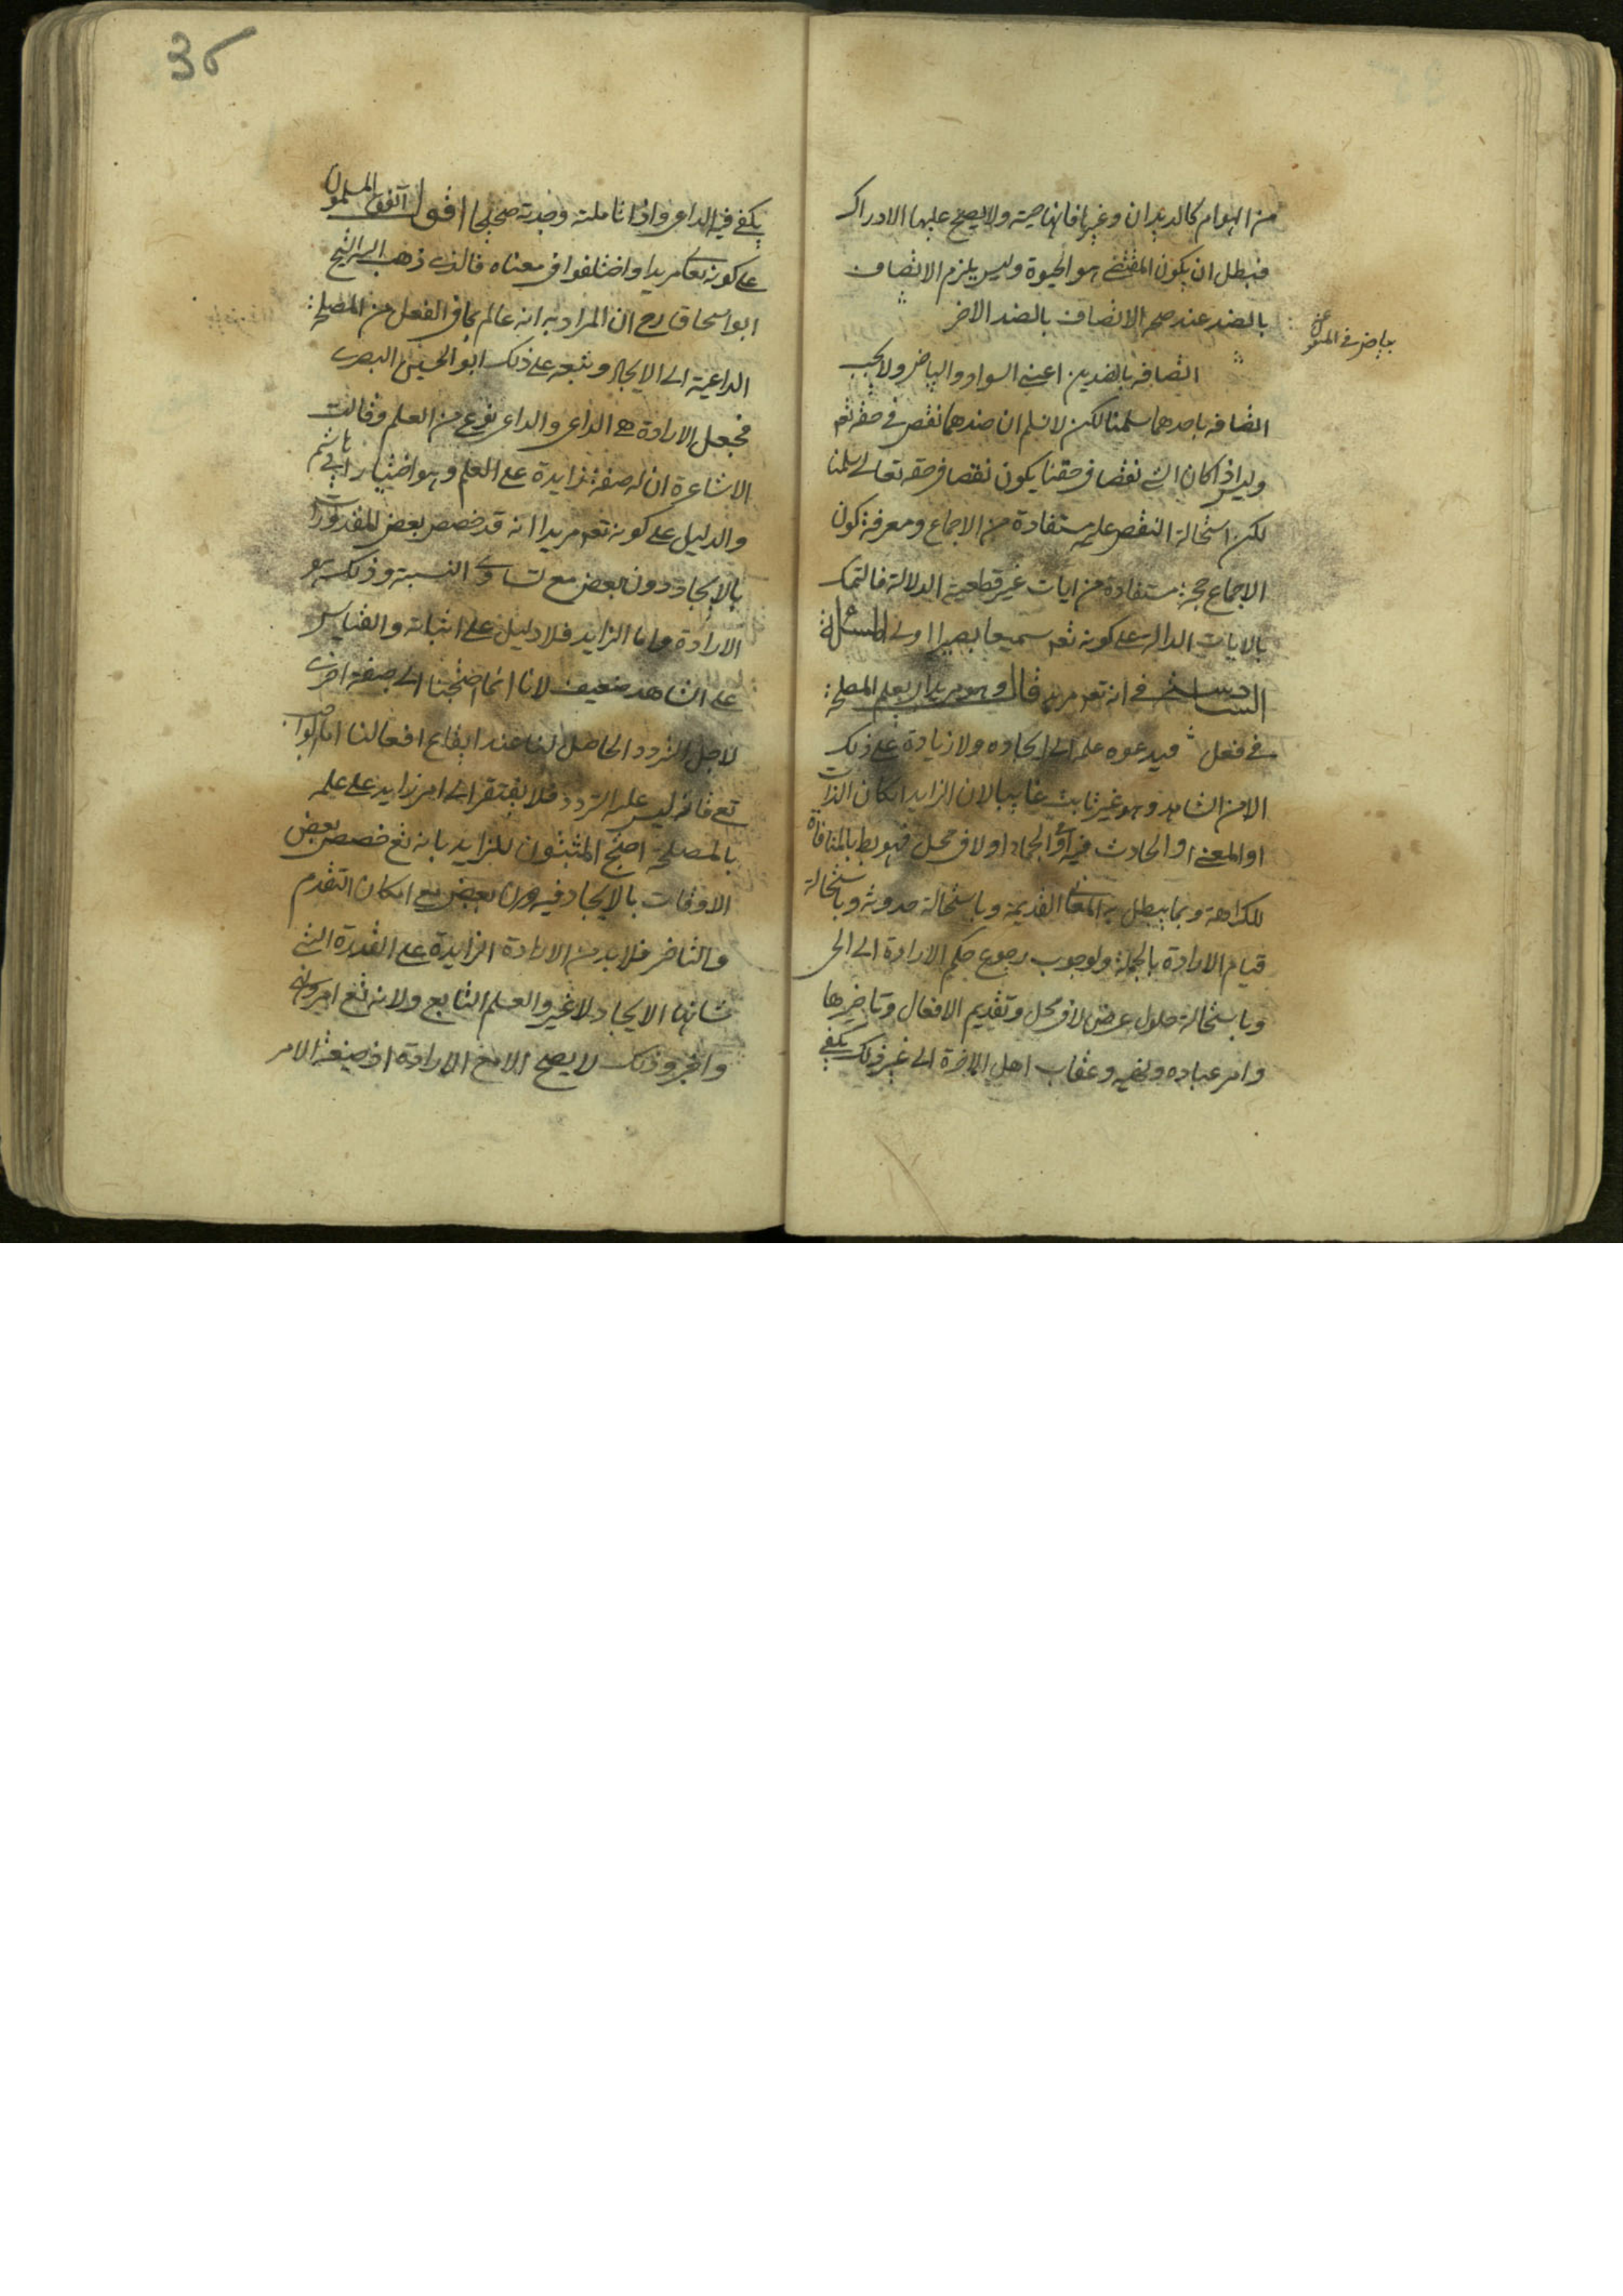 من الهوام كالديدان وغيرها فانها حية ولا يصح عليها الادراك
فبطل ان يكون المقتضى هو الحيوة وليس يلزم الاتصاف
بالضد عند صحة الاتصاف بالضد الاخر
بياض في المنقول
اتصافه بالضدين اعني السواد والبياض ولا يجب
اتصافه باحدهما سلمنا لكن لا نسلم ان ضدهما نقص في حقه تع
وليس اذا كان الشي نقصا في حقنا يكون نقصا في حقه تعالى سلمنا
لكن استحالة النقص عليه مستفادة من الاجماع ومعرفة كون
الاجماع حجة مستفادة من ايات غير قطعية الدلالة فالتمسك
بالايات الدالة على كونه تع سميعا بصيرا اولى المسئلة
السادسة في انه تع مريد قال وهو مريد اي يعلم المصلحة
في فعل فيدعوه علمه الى ايجاده ولا زيادة على ذلك
الا من الشاهد وهو غير ثابت غايبا لان الزايد اكان الذات
او المعنى او الحادث فيه او الجماد او لا في محل فهو بط بالمنافاة
للكراهة وبما يبطل به المعاني القديمة وباستحالة حدوثه وباستحالة
قيام الارادة بالجملة ولوجوب رجوع حكم الارادة الى الحي
وباستحالة حلول عرض لا في محل وتقديم الافعال وتاخيرها
وامر عباده ونهيه وعقاب اهل الاخرة الى غير ذلك يكفي
36
يكفي فيه الداعي واذا تاملته وجدته صحيحا اقول اتفق المسلمون
على كونه تعالى مريدا واختلفوا في معناه فالذي ذهب اليه الشيخ
ابو اسحاق رح ان المراد به انه عالم بما في الفعل من المصلحة
الداعية الى الايجاد وتبعه على ذلك ابو الحسين البصري
فجعل الارادة هي الداعي والداعي نوع من العلم وقالت
الاشاعرة ان له صفة زايدة على العلم وهو اختيار ابي هاشم
والدليل على كونه تع مريدا انه قد خصص بعض المقدورات
بالايجاد دون بعض مع تساوي النسبة وذلك هو
الارادة واما الزايد فلا دليل على اثباته والقياس
على الشاهد ضعيف لانا انما احتجنا الى صفة اخرى
لاجل التردد الحاصل لنا عند ايقاع افعالنا اما الواجب
تع فانه ليس عليه التردد فلا يفتقر الى امر زايد على علمه
بالمصلحة احتج المثبتون للزايد بانه تع خصص بعض
الاوقات بالايجاد فيه دون بعض مع امكان التقدم
والتاخر فلا بد من الارادة الزايدة على القدرة التي
شانها الايجاد لا غير والعلم التابع ولانه تع امر ونهى
واخبر وذلك لا يصح الا مع الارادة اذ صيغة الامر